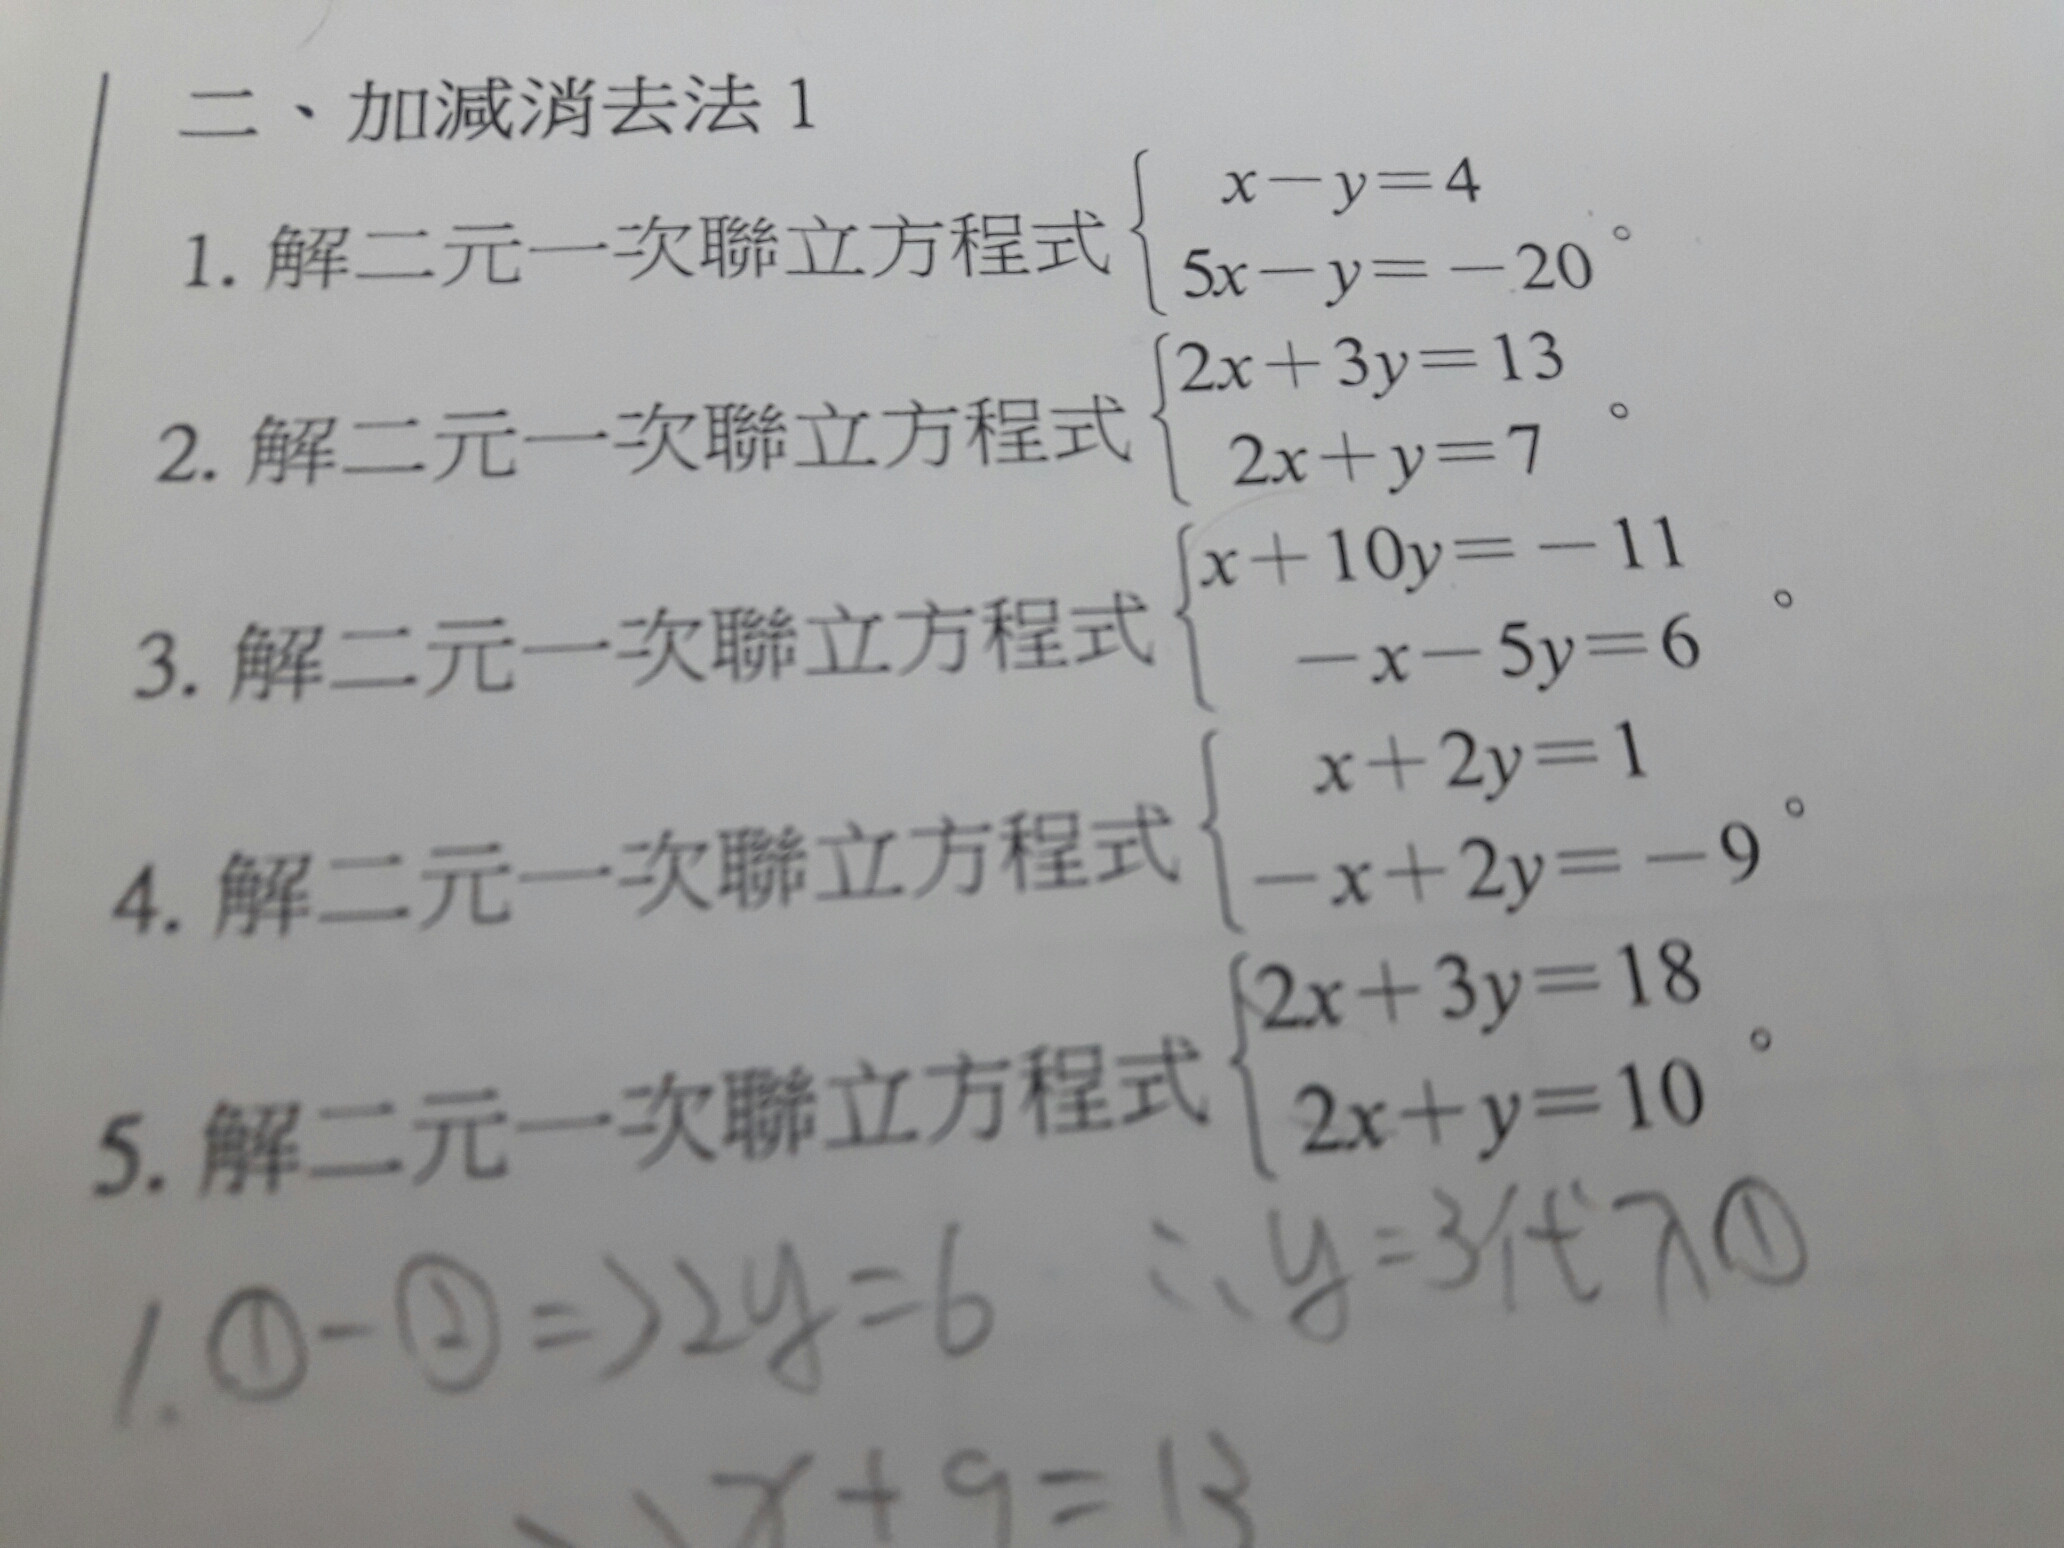 二、加減消去法1
1. 解二元一次聯立方程式 { x－y＝4
5x－y＝－20 。
2. 解二元一次聯立方程式 { 2x＋3y＝13
2x＋y＝7 。
3. 解二元一次聯立方程式 { x＋10y＝－11
－x－5y＝6 。
4. 解二元一次聯立方程式 { x＋2y＝1
－x＋2y＝－9 。
5. 解二元一次聯立方程式 { 2x＋3y＝18
2x＋y＝10 。
1. ①－② => 2y=6 ∴ y=3代入①
x+9=13